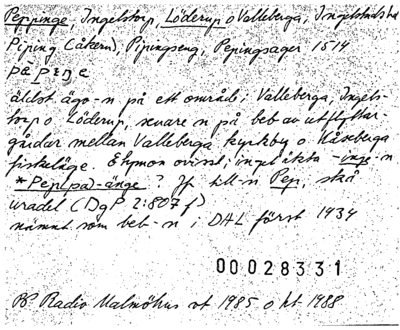 Peppinge. Ingelstorp, Löderup o Valleberga, Ingelstads hd
Piping (åkern), Pipingseng, Pepingsager 1514
äldst. ägo-n på ett område i Valleberga, Ingels-
torp o. Löderup, senare n på beb av utflyttar-
gårdar mellan Valleberga kyrkby o Kåseberga
fiskeläge. Etymon ovisst; inget äkta -inge-n
*Pep(pa)-änge? Jf till-n Pep, skå
uradel (DgP 2:807 f)
nämnt som beb-n i DAL först 1934
00028331
PP Radio Malmöhus vt 1985 o ht 1988